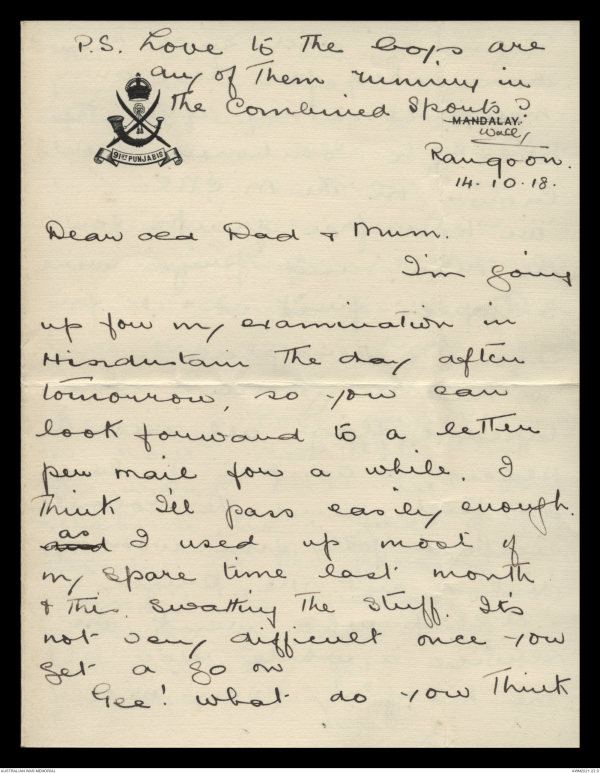 P.S. Love to the boys are
any of them running in
the Combined Sports?
Wally
91ST PUNJABIS
MANDALAY.
Rangoon.
14.10.18.
Dear old Dad & Mum.
I'm going
up for my examination in
Hindustani the day after
tomorrow, so you can
look forward to a letter
per mail for a while. I
think I'll pass easily enough.
and as I used up most of
my spare time last month
& this swatting the stuff. It's
not very difficult once you
get a go on
Gee! what do you think
AUSTRALIAN WAR MEMORIAL